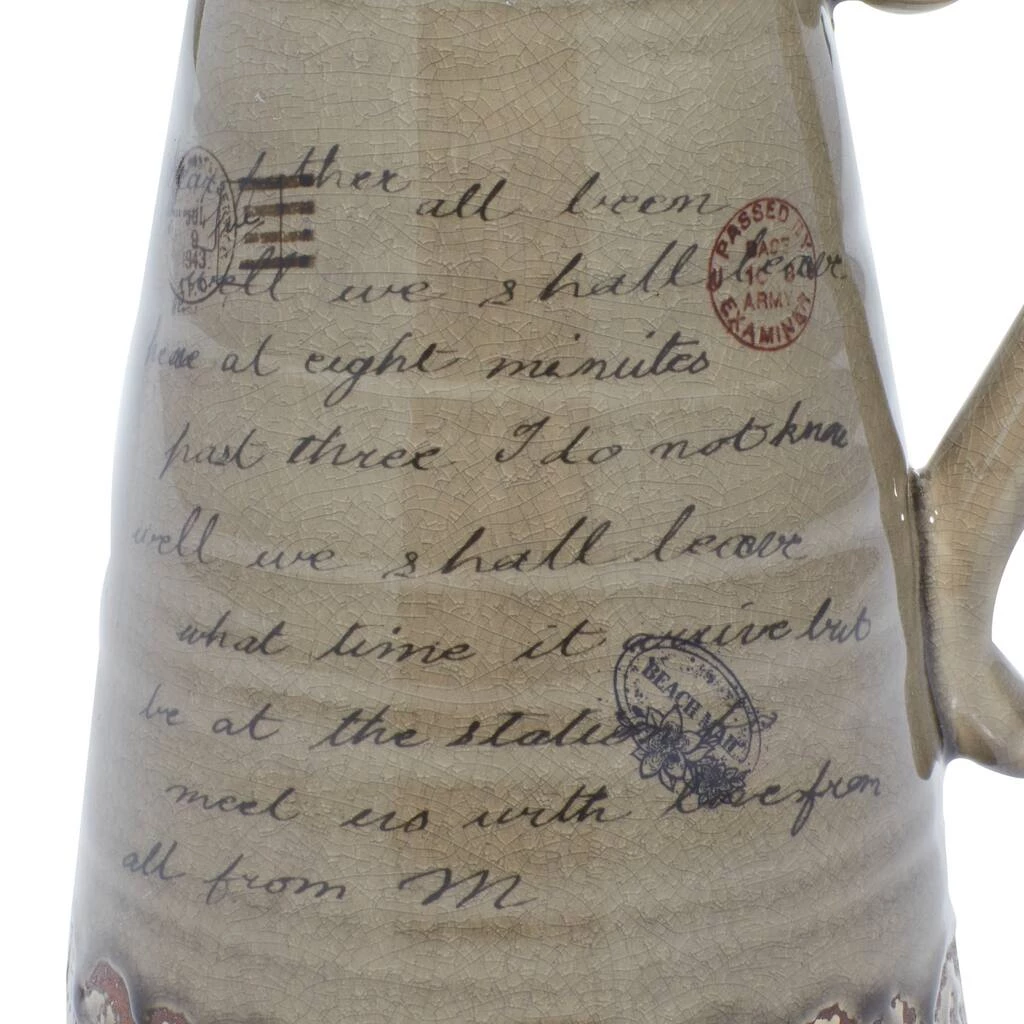 father
all been
well we shall leave
at eight minutes
past three I do not know
well we shall leave
what time it arrive but
be at the station
meet us with love from
all from M
JUL
9
1943
PASSED BY
BASE
ARMY
EXAMINER
BEACH MAIL